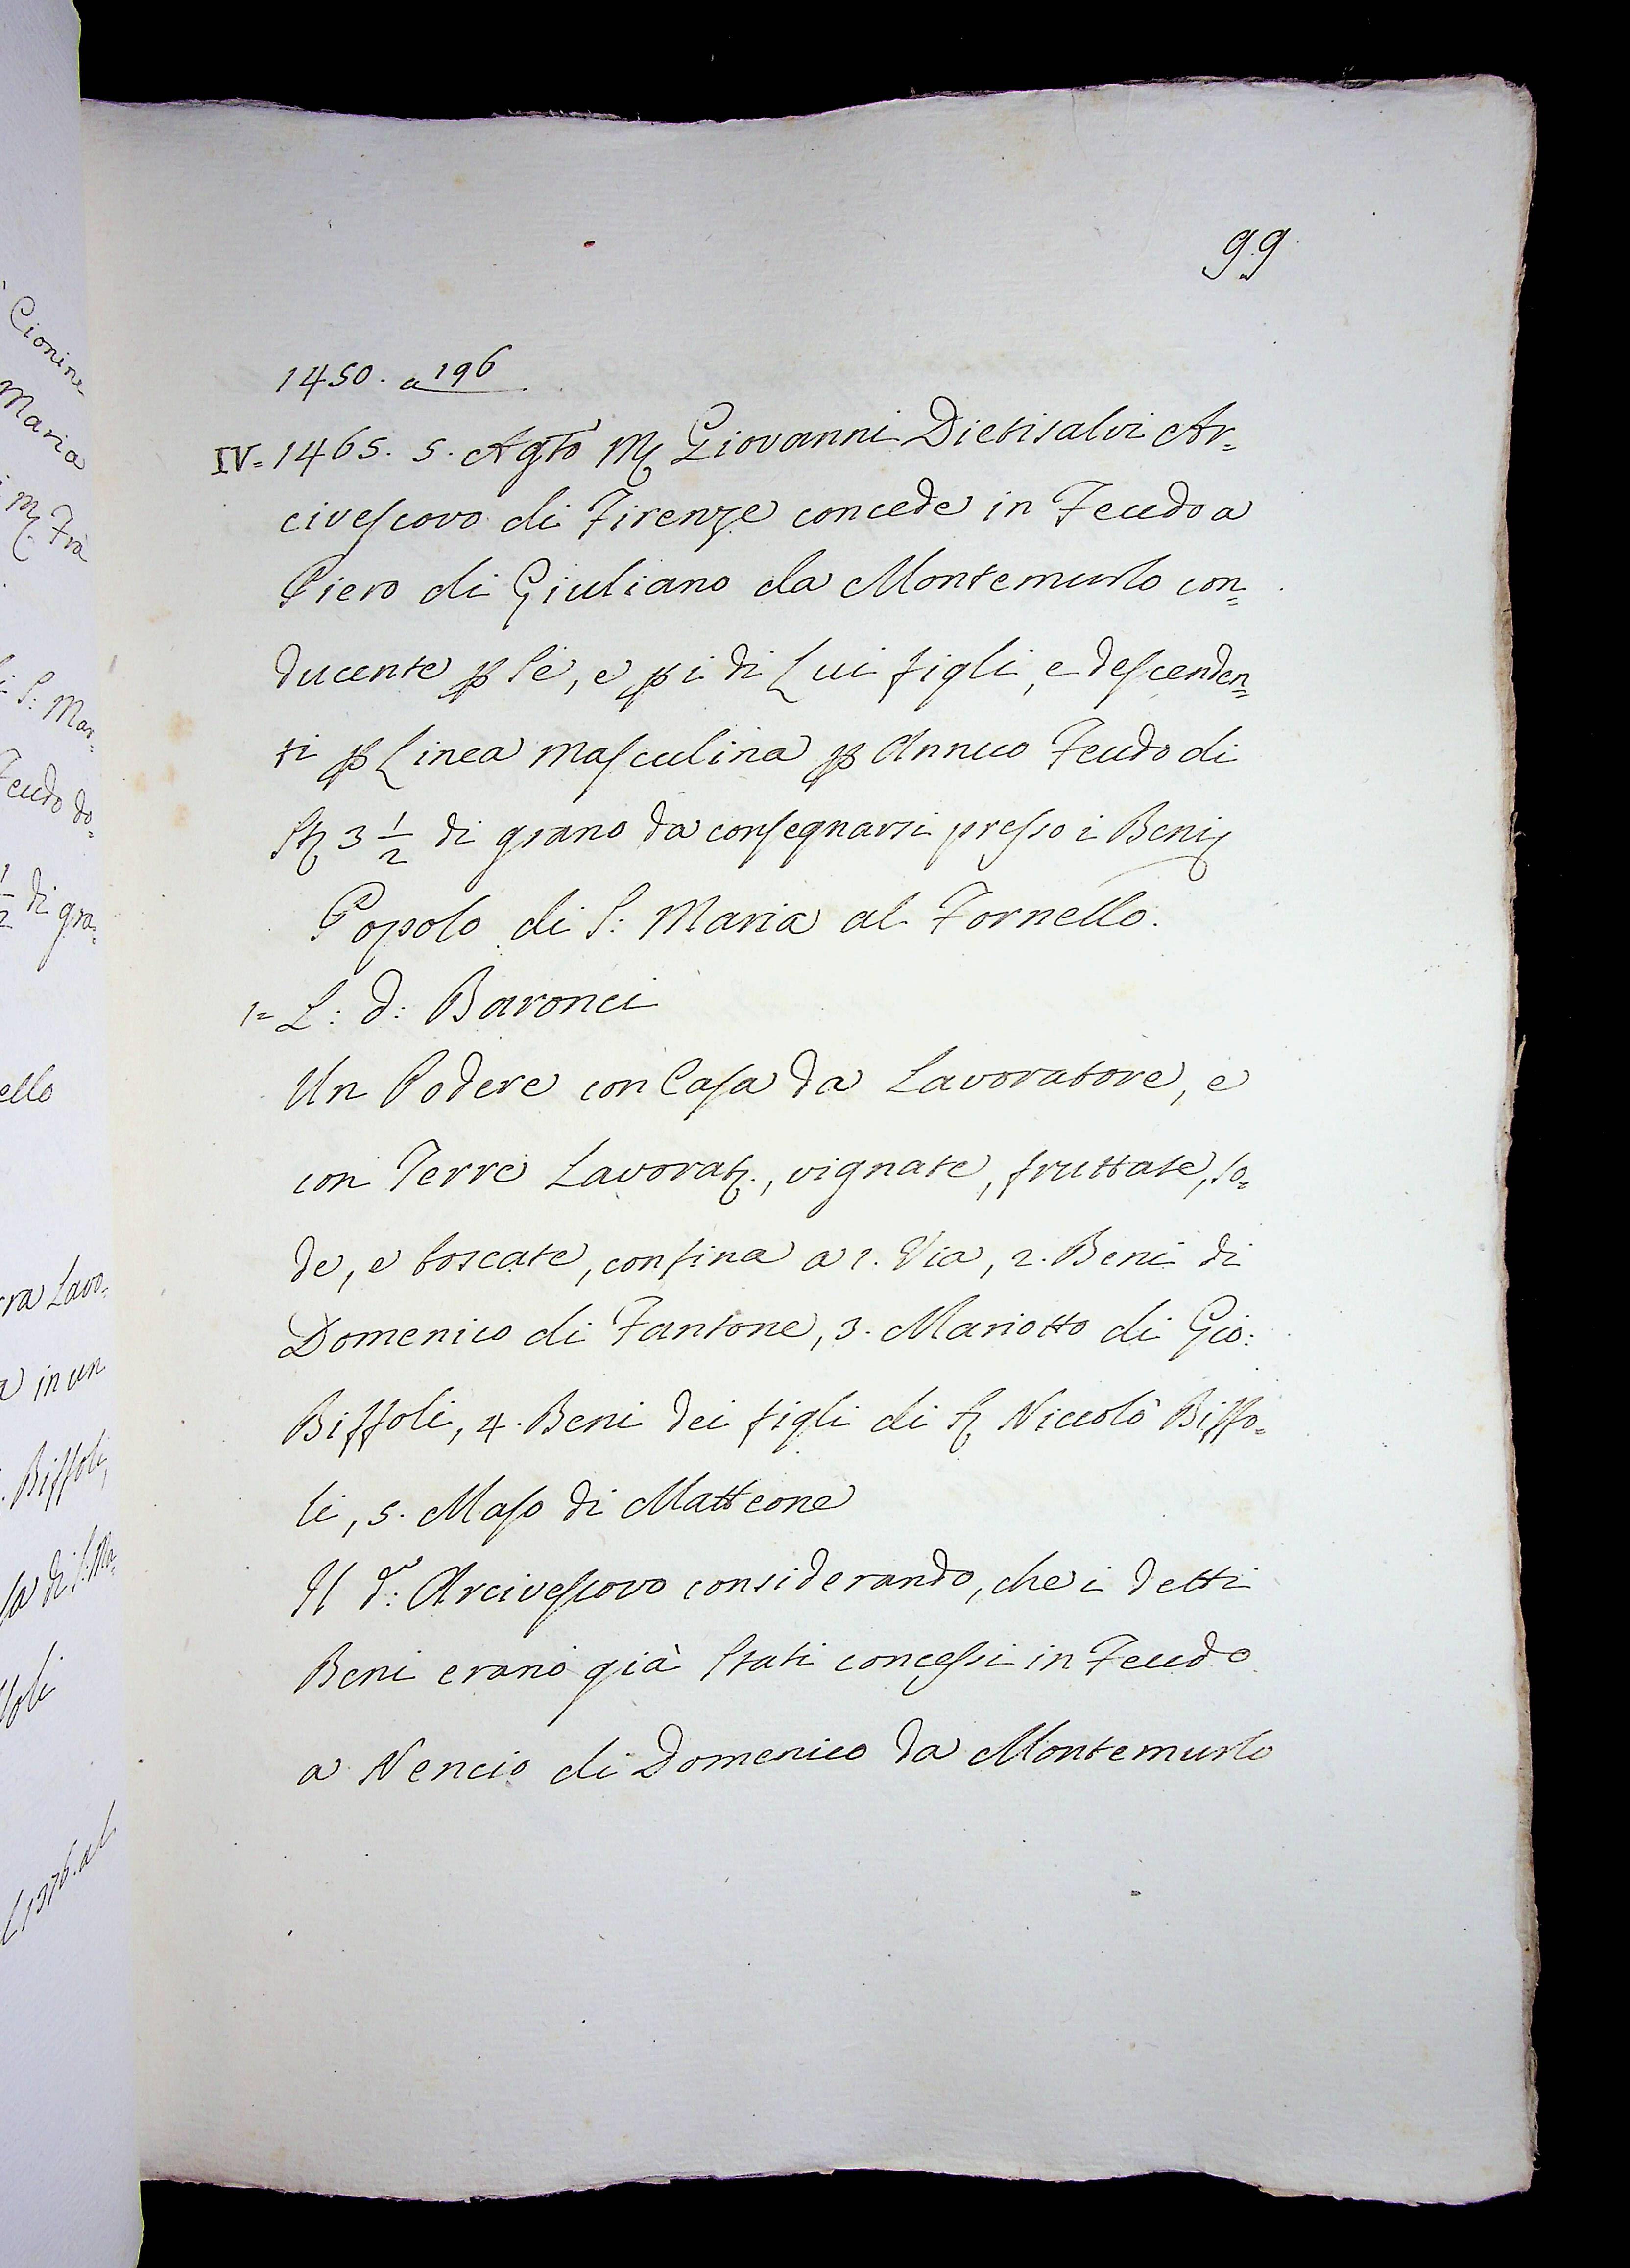 99
1450. a 196
IV= 1465. 5. Agto M Giovanni Dietisalvi Ar=
civescovo di Firenze concede in Feudo a
Piero di Giuliano da Montemurlo con=
ducente p Se, e p i di Lui figli, e descenden=
ti p Linea Masculina p Annuo Feudo di
St 3 1/2 di grano da consegnarsi presso i Beni
Popolo di S: Maria al Fornello.
1= L: d: Baronci
Un Podere con Casa da Lavoratore, e
con Terre Lavorat., vignate, fruttate, so=
de, e boscate, confina a 1. Via, 2. Beni di
Domenico di Fantone, 3. Mariotto di Gio:
Biffoli, 4. Beni dei figli di S Niccolò Biffo=
li, 5. Maso di Matteone
Il d: Arcivescovo considerando, che i detti
Beni erano già Stati concessi in Feudo
a Nencio di Domenico da Montemurlo
Cionine
Maria
M Frà
S: Mar=
Feudo do=
1/2 di gra=
ello
ra Lavo=
a in un
Biffoli,
sa di S: Ma=
foli
1376. al